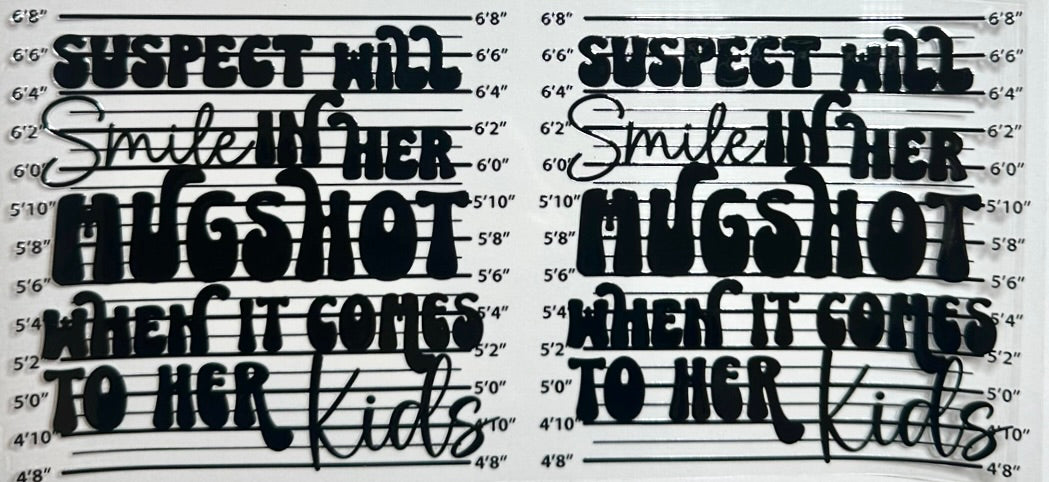 6'8" 6'8"
6'6" SUSPECT WILL 6'6"
6'4" 6'4"
6'2" Smile IN HER 6'2"
6'0" 6'0"
5'10" MUGSHOT 5'10"
5'8" 5'8"
5'6" 5'6"
5'4" WHEN IT COMES 5'4"
5'2" 5'2"
5'0" TO HER Kids 5'0"
4'10" 4'10"
4'8" 4'8"
6'8" 6'8"
6'6" SUSPECT WILL 6'6"
6'4" 6'4"
6'2" Smile IN HER 6'2"
6'0" 6'0"
5'10" MUGSHOT 5'10"
5'8" 5'8"
5'6" 5'6"
5'4" WHEN IT COMES 5'4"
5'2" 5'2"
5'0" TO HER Kids 5'0"
4'10" 4'10"
4'8" 4'8"